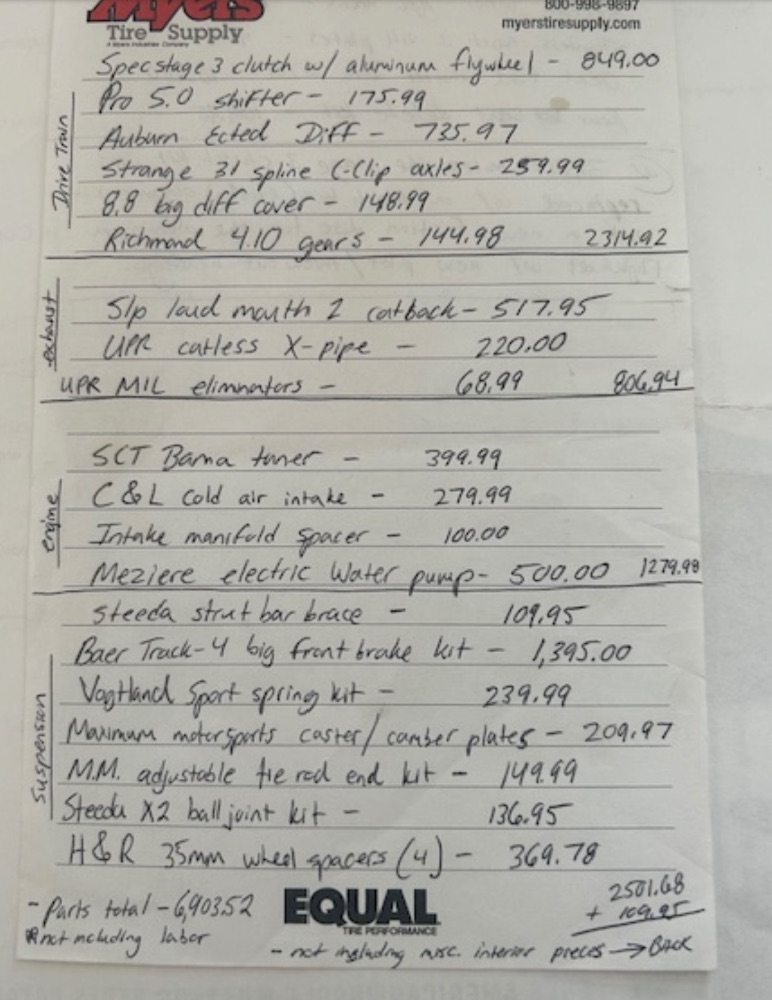 Myers
800-998-9897
Tire Supply
myerstiresupply.com
A Myers Industries Company
Spec stage 3 clutch w/ aluminum flywheel - 849.00
Pro 5.0 shifter - 175.99
Auburn Ected Diff - 735.97
Strange 31 spline C-Clip axles - 259.99
8.8 big diff cover - 148.99
Richmond 4.10 gears - 144.98 2314.92
Drive Train
Slp loud mouth 2 catback - 517.95
UPR catless X-pipe - 220.00
UPR MIL eliminators - 68.99 806.94
exhaust
SCT Bama tuner - 399.99
C&L cold air intake - 279.99
Intake manifold spacer - 100.00
Meziere electric Water pump - 500.00 1279.98
engine
Steeda strut bar brace - 109.95
Baer Track-4 big front brake kit - 1,395.00
Vogtland Sport spring kit - 239.99
Maximum motorsports caster/camber plates - 209.97
M.M. adjustable tie rod end kit - 149.99
Steeda X2 ball joint kit - 136.95
H&R 35mm wheel spacers (4) - 369.78
Suspension
2501.68
+ 109.95
- Parts total - 6,903.52
EQUAL
TIRE PERFORMANCE
*not including labor
- not including misc. interior pieces → BACK